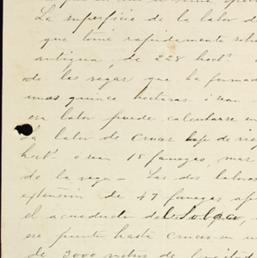 La superficie de la labor d
que tomé rapidamente sobr
antigua, de 228 hect.
de las vegas que la forma
unas quince hectareas ó sean
esa labor puede calcularse en
la labor de Cruces bajo de rieg
hect. ó sean 18 fanegas, mas
de la vega - Las dos labores
extensión de 47 fanegas ap
el acueducto del Sotajo, 
se puente hasta Cruces en u
de 3000 metros de longitud